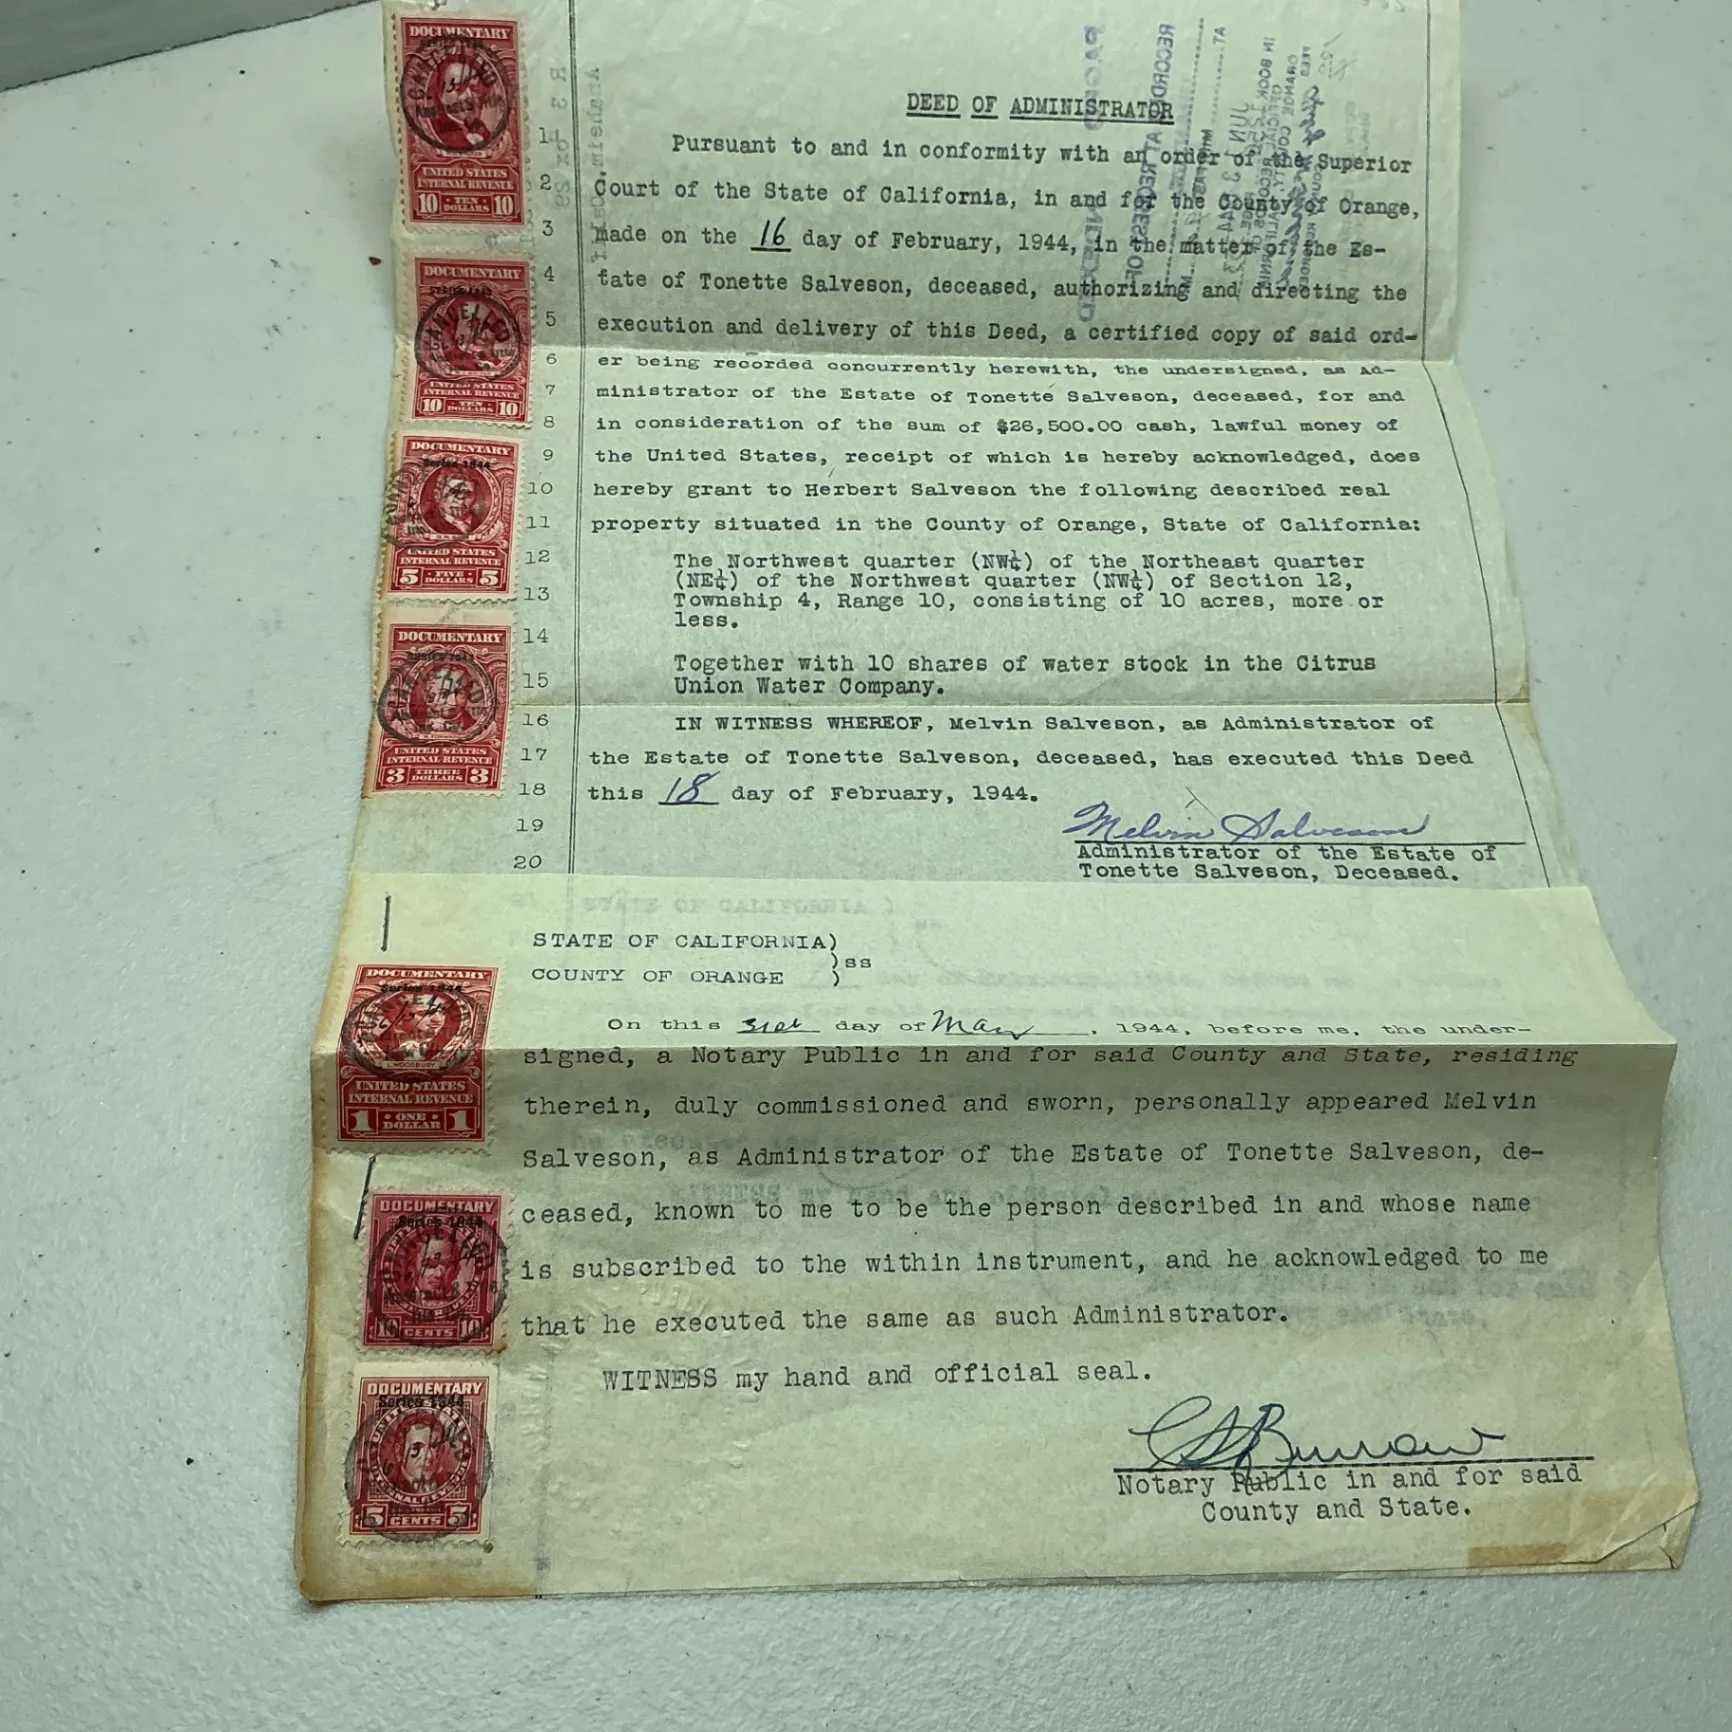 DEED OF ADMINISTRATOR
1 Pursuant to and in conformity with an order of the Superior
2 Court of the State of California, in and for the County of Orange,
3 made on the 16 day of February, 1944, in the matter of the Es-
4 tate of Tonette Salveson, deceased, authorizing and directing the
5 execution and delivery of this Deed, a certified copy of said ord-
6 er being recorded concurrently herewith, the undersigned, as Ad-
7 ministrator of the Estate of Tonette Salveson, deceased, for and
8 in consideration of the sum of $26,500.00 cash, lawful money of
9 the United States, receipt of which is hereby acknowledged, does
10 hereby grant to Herbert Salveson the following described real
11 property situated in the County of Orange, State of California:
12 The Northwest quarter (NW¼) of the Northeast quarter
(NE¼) of the Northwest quarter (NW¼) of Section 12,
13 Township 4, Range 10, consisting of 10 acres, more or
less.
14
Together with 10 shares of water stock in the Citrus
15 Union Water Company.
16 IN WITNESS WHEREOF, Melvin Salveson, as Administrator of
17 the Estate of Tonette Salveson, deceased, has executed this Deed
18 this 18 day of February, 1944.
19 Melvin Salveson
Administrator of the Estate of
20 Tonette Salveson, Deceased.
STATE OF CALIFORNIA)
)ss
COUNTY OF ORANGE )
On this 31st day of May, 1944, before me, the under-
signed, a Notary Public in and for said County and State, residing
therein, duly commissioned and sworn, personally appeared Melvin
Salveson, as Administrator of the Estate of Tonette Salveson, de-
ceased, known to me to be the person described in and whose name
is subscribed to the within instrument, and he acknowledged to me
that he executed the same as such Administrator.
WITNESS my hand and official seal.
Notary Public in and for said
County and State.
DOCUMENTARY
UNITED STATES
INTERNAL REVENUE
10 TEN DOLLARS 10
DOCUMENTARY
UNITED STATES
INTERNAL REVENUE
10 TEN DOLLARS 10
DOCUMENTARY
Series 1944
UNITED STATES
INTERNAL REVENUE
5 FIVE DOLLARS 5
DOCUMENTARY
UNITED STATES
INTERNAL REVENUE
3 THREE DOLLARS 3
DOCUMENTARY
Series 1944
L. WOODBURY
UNITED STATES
INTERNAL REVENUE
1 ONE DOLLAR 1
DOCUMENTARY
Series 1944
10 CENTS 10
DOCUMENTARY
Series 1944
5 CENTS 5